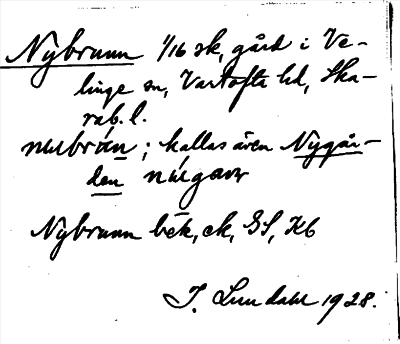 Nybrunn 1/16 sk, gård i Ve-
linge sn, Vartofta hd, Ska-
rab. l.
nubrán; kallas även Nygår-
den núgaɷr
Nybrunn bek, ek, GS, Kb
I. Lundahl 1928.